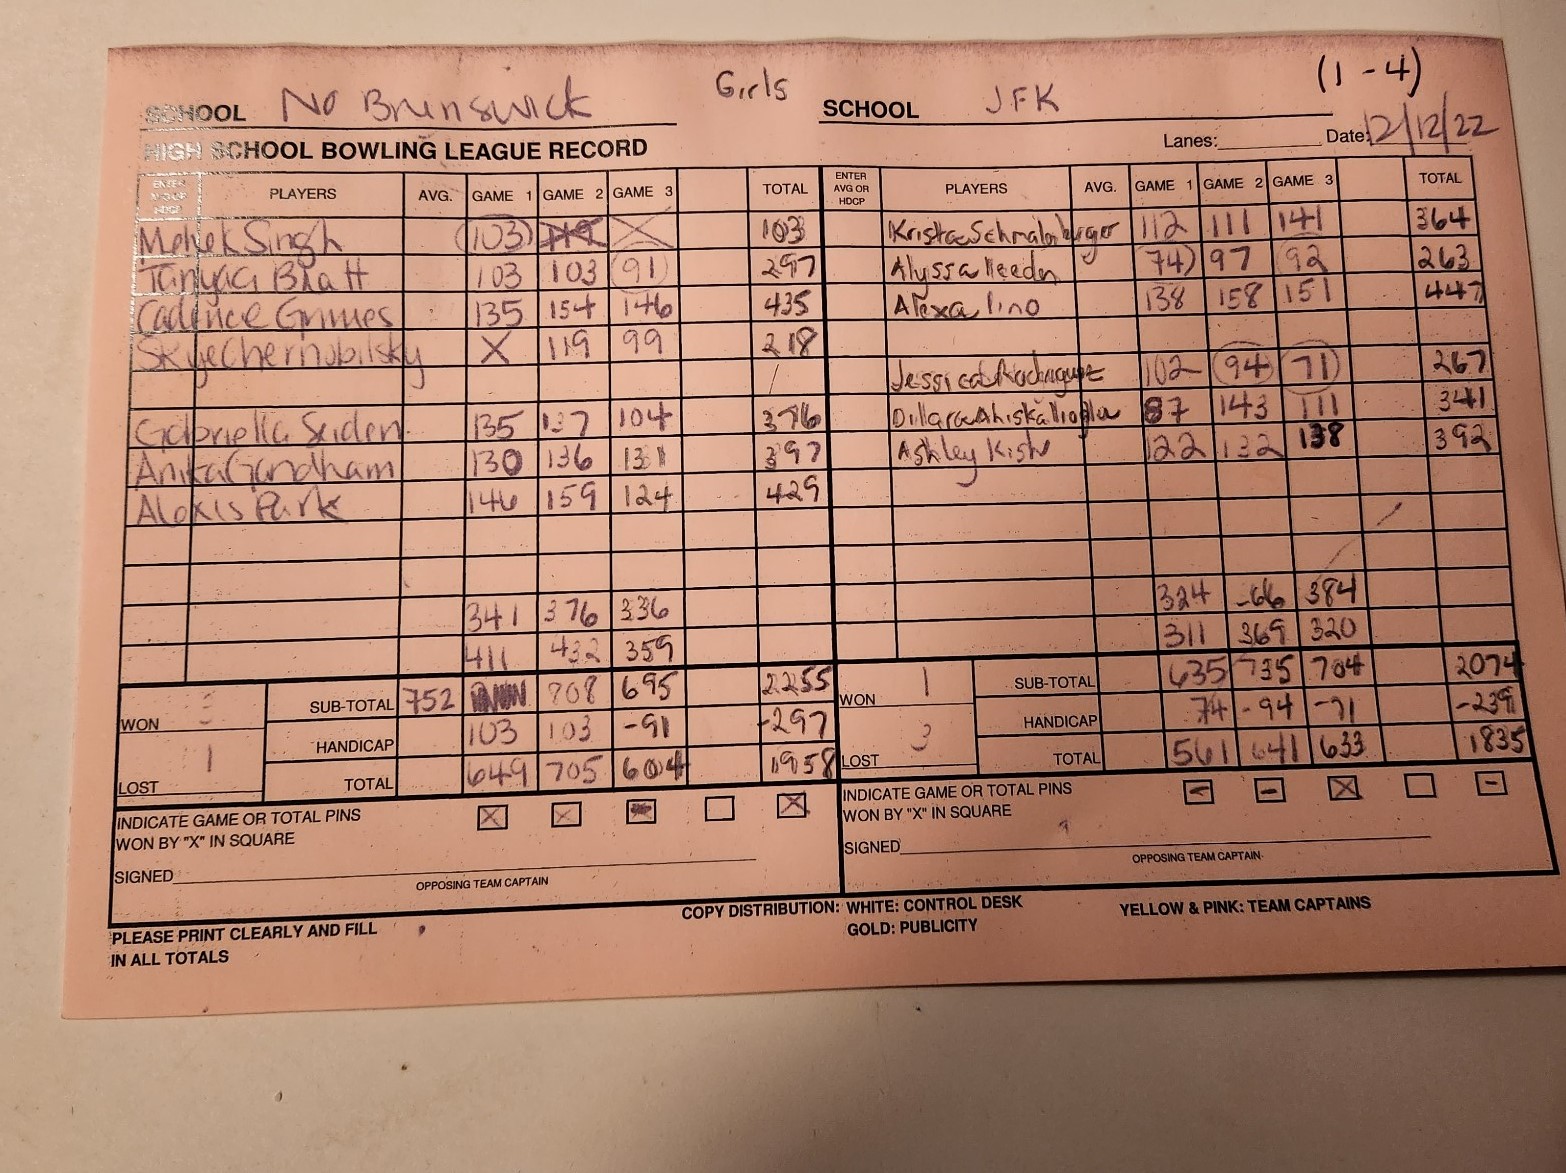 Girls (1-4)
SCHOOL No Brunswick SCHOOL JFK
HIGH SCHOOL BOWLING LEAGUE RECORD Lanes: Date: 12/12/22
ENTER AVG OR HDCP PLAYERS AVG. GAME 1 GAME 2 GAME 3 TOTAL ENTER AVG OR HDCP PLAYERS AVG. GAME 1 GAME 2 GAME 3 TOTAL
Mehek Singh 103 X 103 Krista Schmalenberger 112 111 141 364
Tanyaa Bhatt 103 103 91 297 Alyssa 74 97 92 263
Cadence Grimes 135 154 146 435 Alexa Lino 138 158 151 447
Skye Chernobilsky X 119 99 218
Jessica Rodriguez 102 94 71 267
Gabriella Seiden 135 137 104 376 Dillara Ahiskalioglu 87 143 111 341
Anika Gandham 130 136 131 397 Ashley Kish 122 132 138 392
Alexis Park 146 159 124 429
341 376 336 324 -66 384
411 432 359 311 369 320
WON 3 SUB-TOTAL 752 708 695 2255 WON 1 SUB-TOTAL 635 735 704 2074
HANDICAP 103 103 -91 -297 HANDICAP 74 -94 -71 -239
LOST 1 TOTAL 649 705 604 1958 LOST 3 TOTAL 561 641 633 1835
INDICATE GAME OR TOTAL PINS WON BY "X" IN SQUARE X X X INDICATE GAME OR TOTAL PINS WON BY "X" IN SQUARE - - X -
SIGNED SIGNED
OPPOSING TEAM CAPTAIN OPPOSING TEAM CAPTAIN
PLEASE PRINT CLEARLY AND FILL IN ALL TOTALS
COPY DISTRIBUTION: WHITE: CONTROL DESK YELLOW & PINK: TEAM CAPTAINS
GOLD: PUBLICITY